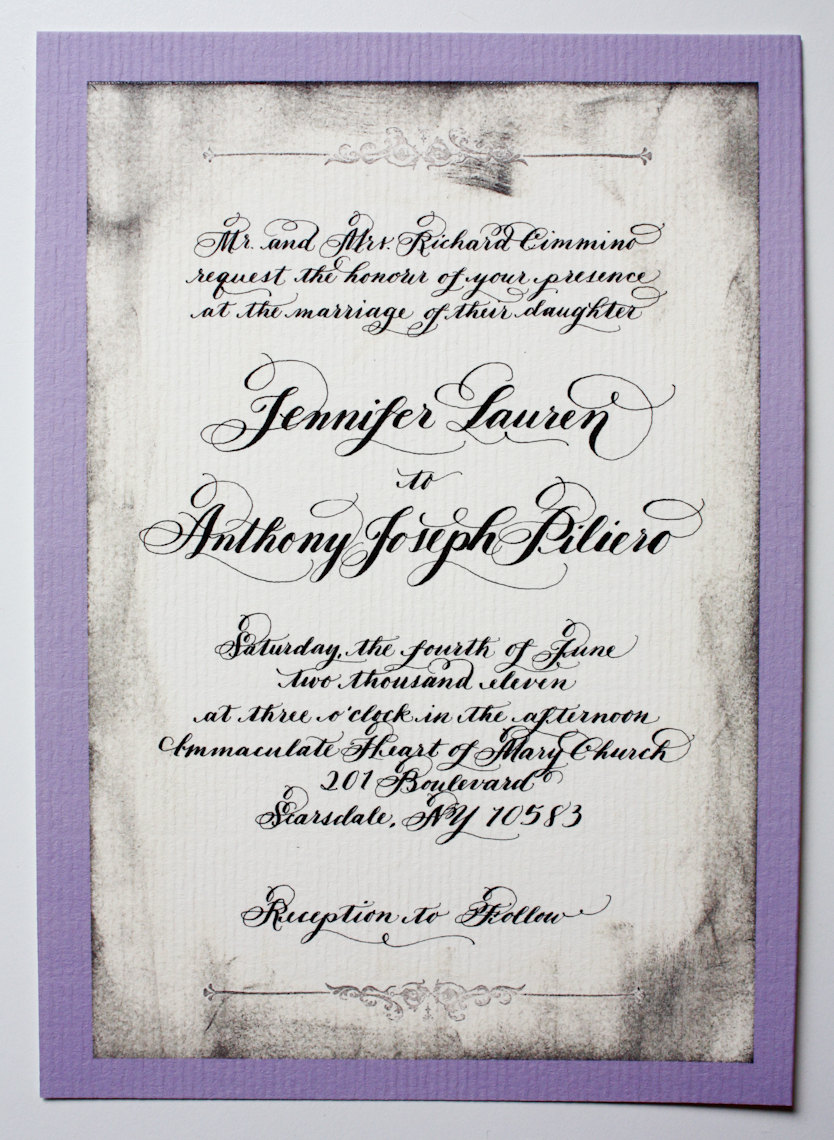 Mr. and Mrs. Richard Cimmino
request the honour of your presence
at the marriage of their daughter
Jennifer Lauren
to
Anthony Joseph Piliero
Saturday, the fourth of June
two thousand eleven
at three o'clock in the afternoon
Immaculate Heart of Mary Church
201 Boulevard
Scarsdale, NY 10583
Reception to Follow